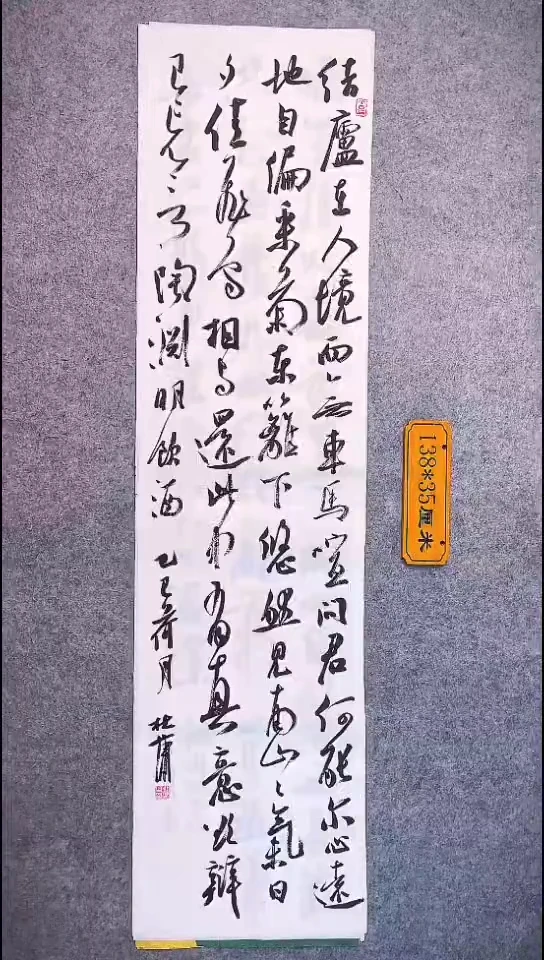 結廬在人境而無車馬喧問君何能尔心遠
地自偏采菊東籬下悠然見南山山氣日
夕佳飛鳥相与還此中有真意欲辯
已忘言陶淵明飲酒 乙巳荷月
138*35厘米